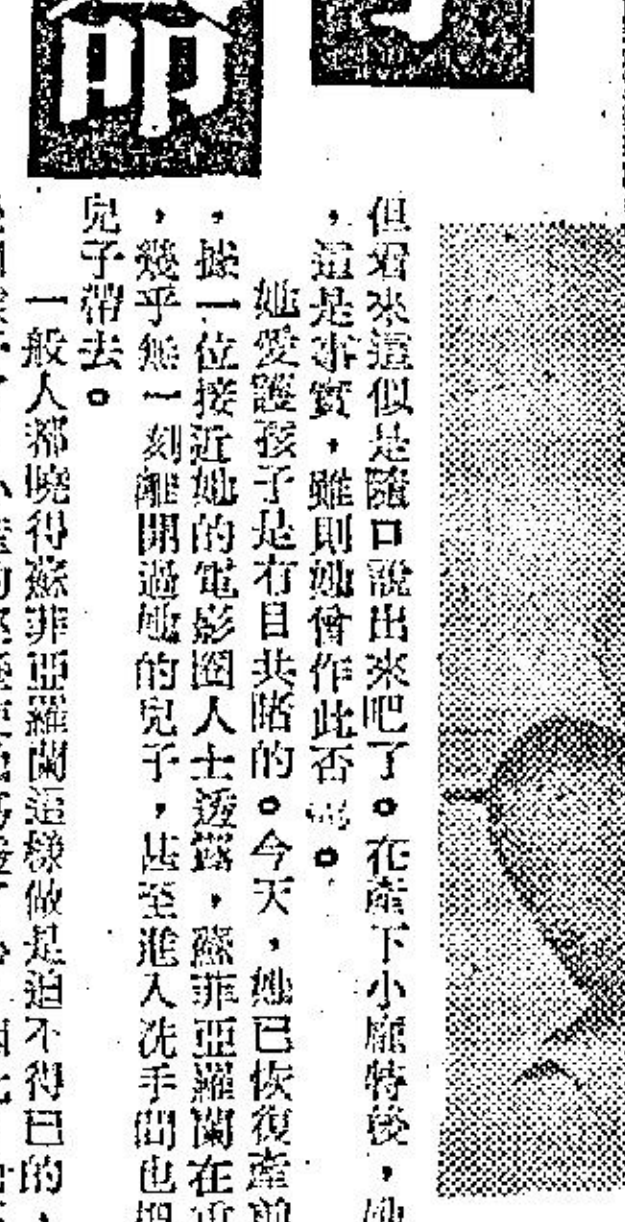 命
但看來這似是隨口說出來吧了。在產下小龐特後，她
，這是事實，雖則她曾作此否認。
她愛護孩子是有目共睹的。今天，她已恢復產前
，據一位接近她的電影圈人士透露，蘇菲亞羅蘭在重
，幾乎無一刻離開過她的兒子，甚至進入洗手間也把
兒子帶去。
一般人都曉得蘇菲亞羅蘭這樣做是迫不得已的，